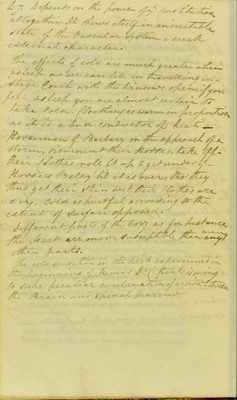 47. Depends on the power of ye constitution
altogether. It shews itself in an irritable
state of the Vascular System & weak
external character.
The effects of cold are much greater when
asleep as we can tell in travelling in a
Stage Coach with the windows open if you
fall asleep you are almost certain to
take cold. Clothing is warm in proportion
as it is a bad conductor of heat
Horsemen of Barbary on the approach of a
storm dismount their Horses take off
their clothes roll it up & get under ye
Horses Belly till it is over, thus they
thus get their skin wet their Clothes are
dry. Cold is hurtful according to the
extent of surface exposed.
Different parts of the body as for instance
the Neck are more susceptible than any
other parts.
The cold sensation in the Neck experienced in
the beginning of Fevers Dr C. thinks is owing
to some peculiar combination of action between
the Brain and Spinal Marrow